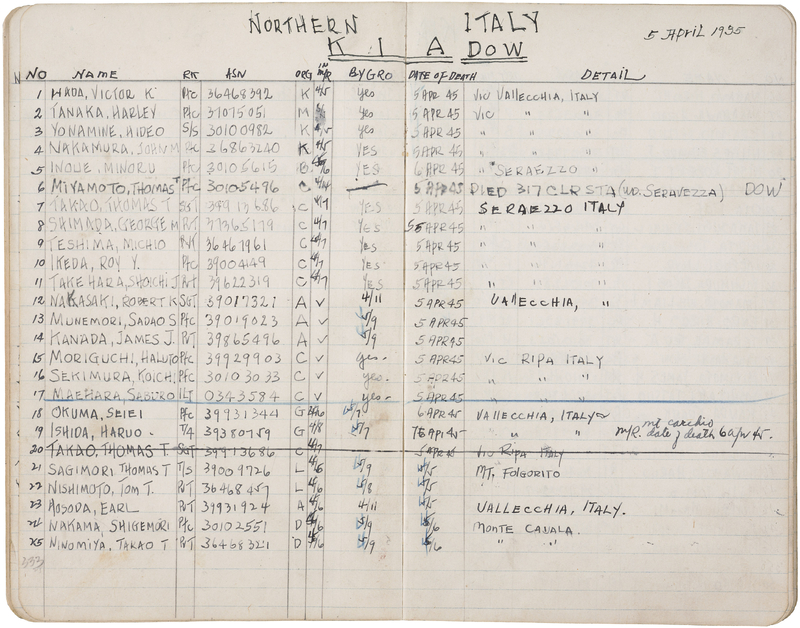 NORTHERN ITALY
5 April 1935
K I A DOW
NO NAME RK ASN ORG IN M/R BY GRO DATE OF DEATH DETAIL
1 HADA, VICTOR K. Pfc 36468392 K 4/5 yes 5 APR 45 VIC VALLECCHIA, ITALY
2 TANAKA, HARLEY Pfc 37075051 M yes 5 APR 45 VIC " "
3 YONAMINE, HIDEO S/S 30100982 K yes 5 APR 45 " " "
4 NAKAMURA, JOHN M Pfc 36863240 K 4/5 YES 5 APR 45 " " "
5 INOUE, MINORU Pfc 30105615 YES 6 APR 45 " "SERAEZZO "
6 MIYAMOTO, THOMAS T Pfc 30105496 C 5 APR 45 DIED 317 CLR STA (WD. SERAVEZZA) DOW
7 TAKAO, THOMAS T SGT 39913686 C 4/7 YES 5 APR 45 SERAEZZO ITALY
8 SHIMADA, GEORGE M PVT 37365179 C 4/7 YES 5 APR 45 " " "
9 TESHIMA, MICHIO PVT 36461961 C 4/7 YES 5 APR 45 " " "
10 IKEDA, ROY Y. Pfc 39004149 C 4/7 YES 5 APR 45 " " "
11 TAKEHARA, SHOICHI J PVT 39622319 C 4/7 YES 5 APR 45 " " "
12 NAKASAKI, ROBERT K SGT 39017321 A ✓ 4/11 5 APR 45 VALLECCHIA, "
13 MUNEMORI, SADAO S Pfc 39019023 A ✓ 4/9 5 APR 45
14 KANADA, JAMES J. PVT 39865496 A ✓ 4/9 5 APR 45
15 MORIGUCHI, HALUTO Pfc 39929903 C ✓ yes. 5 APR 45 VIC RIPA ITALY
16 SEKIMURA, KOICHI Pfc 30103033 C ✓ yes. 5 APR 45 " " "
17 MAEHARA, SABURO 1LT 0343584 C ✓ yes. 5 APR 45 " " "
18 OKUMA, SEIEI Pfc 39931344 G 4/6 4/7 6 APR 45 VALLECCHIA, ITALY
19 ISHIDA, HARUO T/4 39380759 G 4/8 4/7 APR 45 " " mt carchio M/R. date of death 6 apr 45.
20 TAKAO, THOMAS T. SGT 39913686 C 4/7 5 APR 45 VIC RIPA ITALY
21 SAGIMORI THOMAS T T/5 39009726 L 4/6 4/9 4/5 MT. FOLGORITO
22 NISHIMOTO, TOM T. PVT 36468457 L 4/6 4/8 4/5
23 HOSODA, EARL PVT 39931924 A 4/6 4/11 4/5 VALLECCHIA, ITALY.
24 NAKAMA, SHIGENORI Pfc 30102551 D 4/6 4/9 4/6 MONTE CAUALA.
25 NINOMIYA, TAKAO T PVT 36468321 D 4/6 4/9 4/6 " "